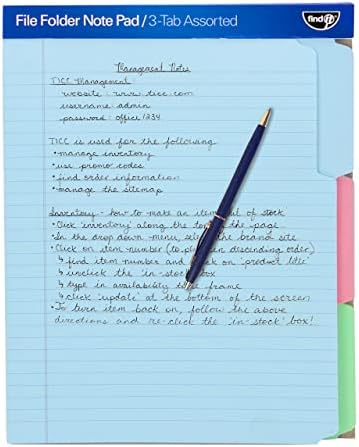 File Folder Note Pad / 3-Tab Assorted
find It
Management Notes
TICC Management
website: www.ticc.com
username: admin
password: office1234
TICC is used for the following
• manage inventory
• use promo codes
• find order information
• manage the sitemap
Inventory - how to make an item out of stock
• Click 'inventory' along the top of the page
• In the drop down menu, select the brand site
• Click on item number (to place in descending order)
↳ find item number and click on 'product title'
↳ unclick the 'in-stock' box
↳ type in availability time frame
↳ click 'update' at the bottom of the screen
• To turn item back on, follow the above
directions and re-click the 'in-stock' box!